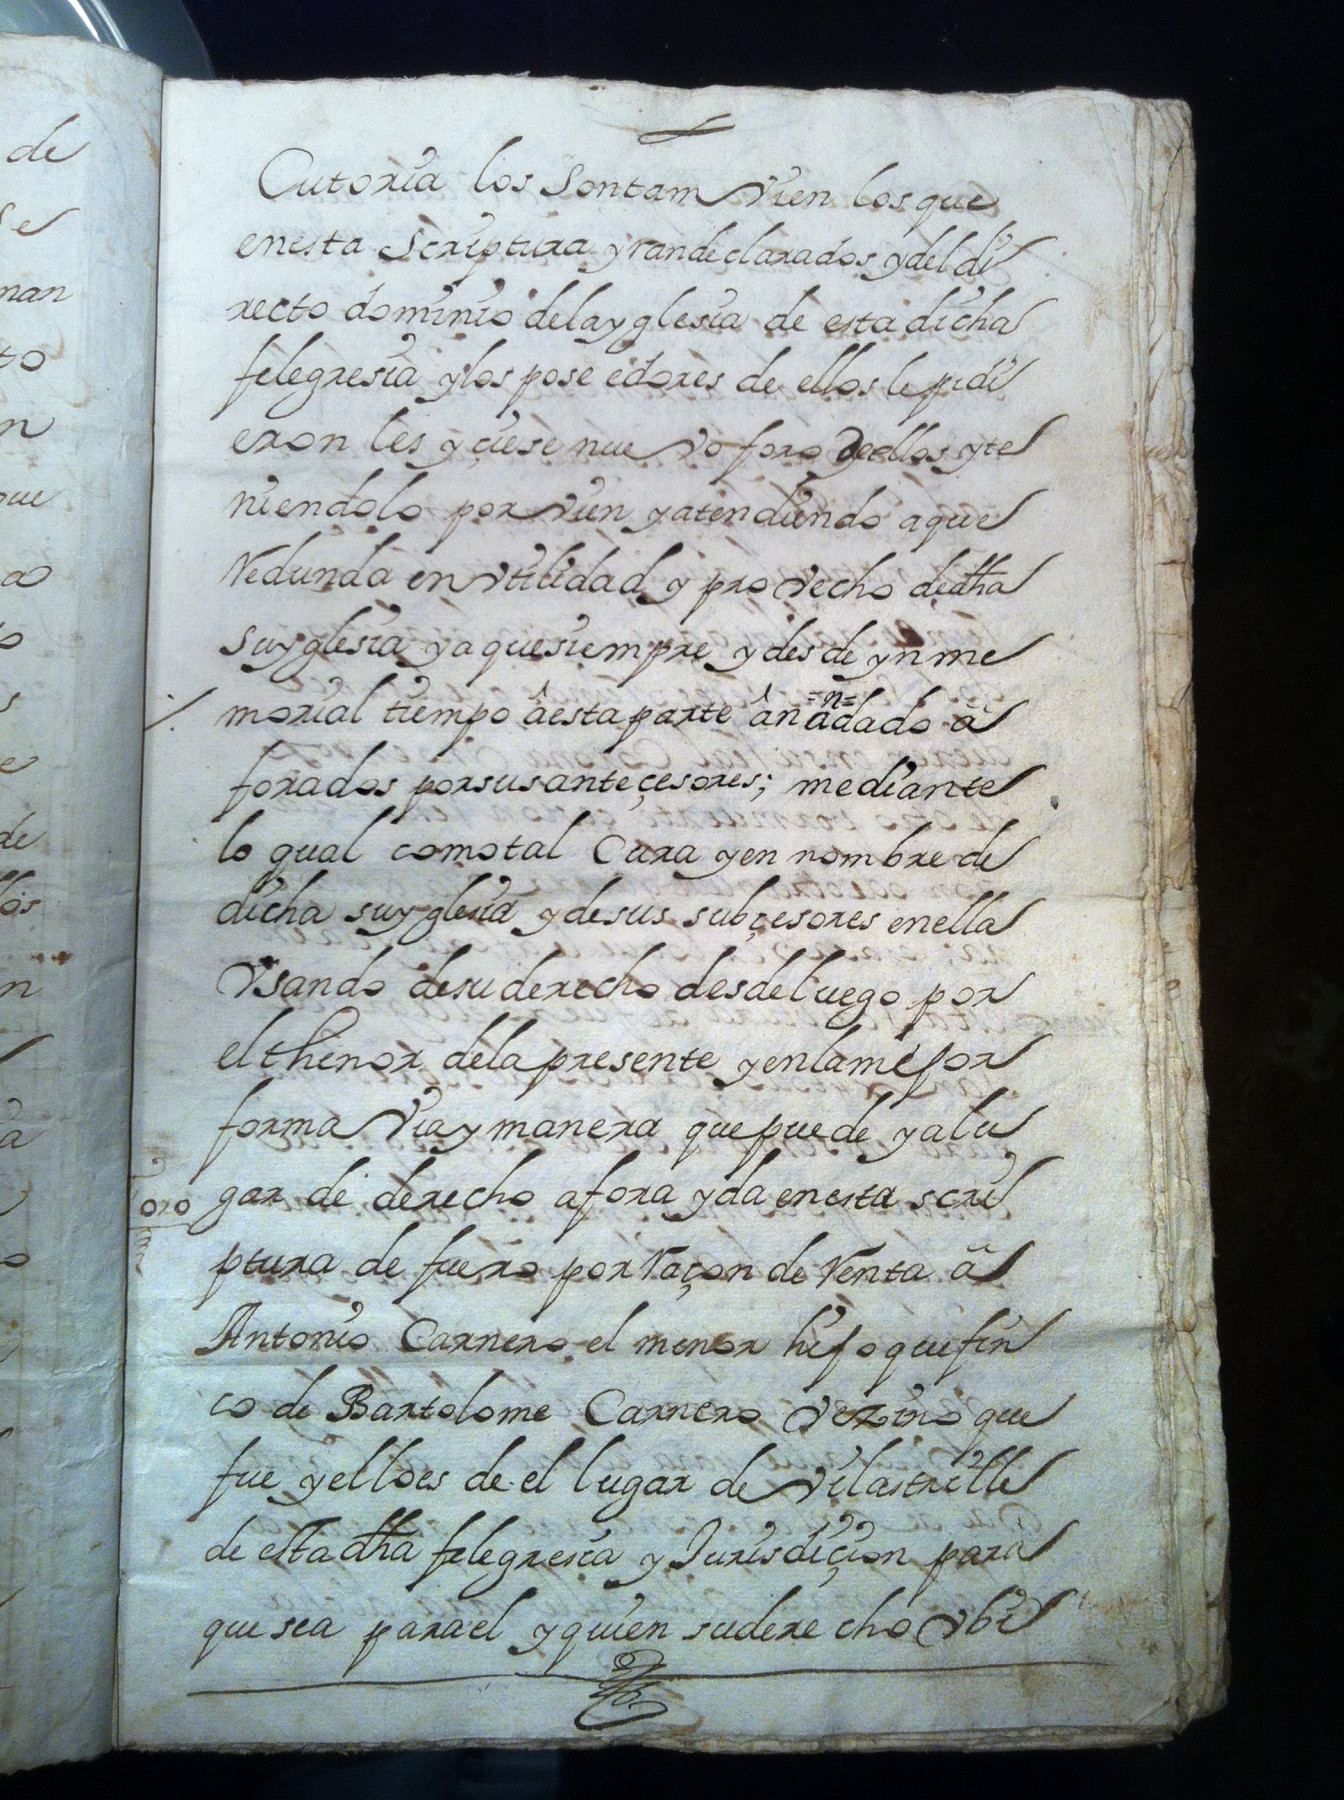 Cutoria los son tam vien los que
en esta Scriptura yran declarados y del di
recto dominio de la yglesia de esta dicha
felegresia y los poseedores de ellos le pidi
eron les yçiese nuevo foro de ellos y te
niendolo por vien y atendiendo a que
Redunda en vtilidad y provecho de dha
su yglesia y a que siempre y desde ynme
morial tiempo â esta parte ân =n= adado â
forados por sus anteçesores; mediante
lo qual como tal Cura y en nombre de
dicha su yglesia y de sus subçesores en ella
Vsando de su derecho desde luego por
el thenor de la presente y en la mejor
forma Via y manera que puede y a lu
gar de derecho afora y da en esta scri
ptura de fuero por Raçon de Renta â
Antonio Carnero el menor hijo que fin
co de Bartolome Carnero vezino que
fue y el lo es de el lugar de Vilastrille
de esta dha felegresia y Jurisdiçion para
que sea para el y quien su derecho vbi
oro
de
Se
nan
to
n
que
ao
s
e
de
llos
n
a
o